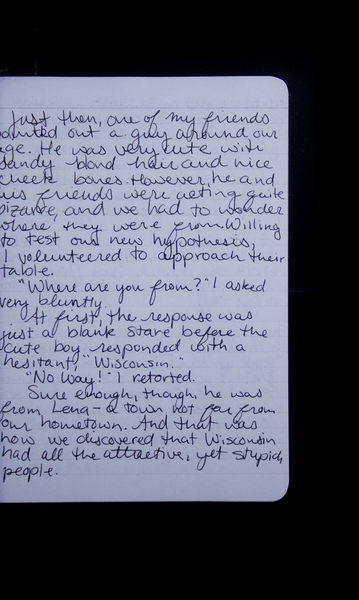 Just then, one of my friends
pointed out a guy around our
age. He was very cute with
sandy blond hair and nice
cheek bones. However, he and
his friends were acting quite
bizarre, and we had to wonder
where they were from. Willing
to test our new hypothesis,
I volunteered to approach their
table.
"Where are you from?" I asked
very bluntly.
At first, the response was
just a blank stare before the
cute boy responded with a
hesitant, "Wisconsin."
"No way!" I retorted.
Sure enough, though, he was
from Lena - a town not far from
our hometown. And that was
how we discovered that Wisconsin
had all the attractive, yet stupid,
people.